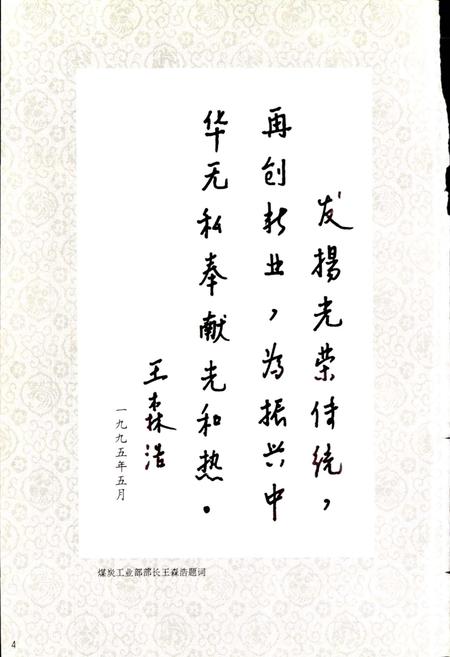 发揚光荣传统，
再创新业，为振兴中
华无私奉献光和热．
王森浩
一九九五年五月
煤炭工业部部长王森浩题词
4